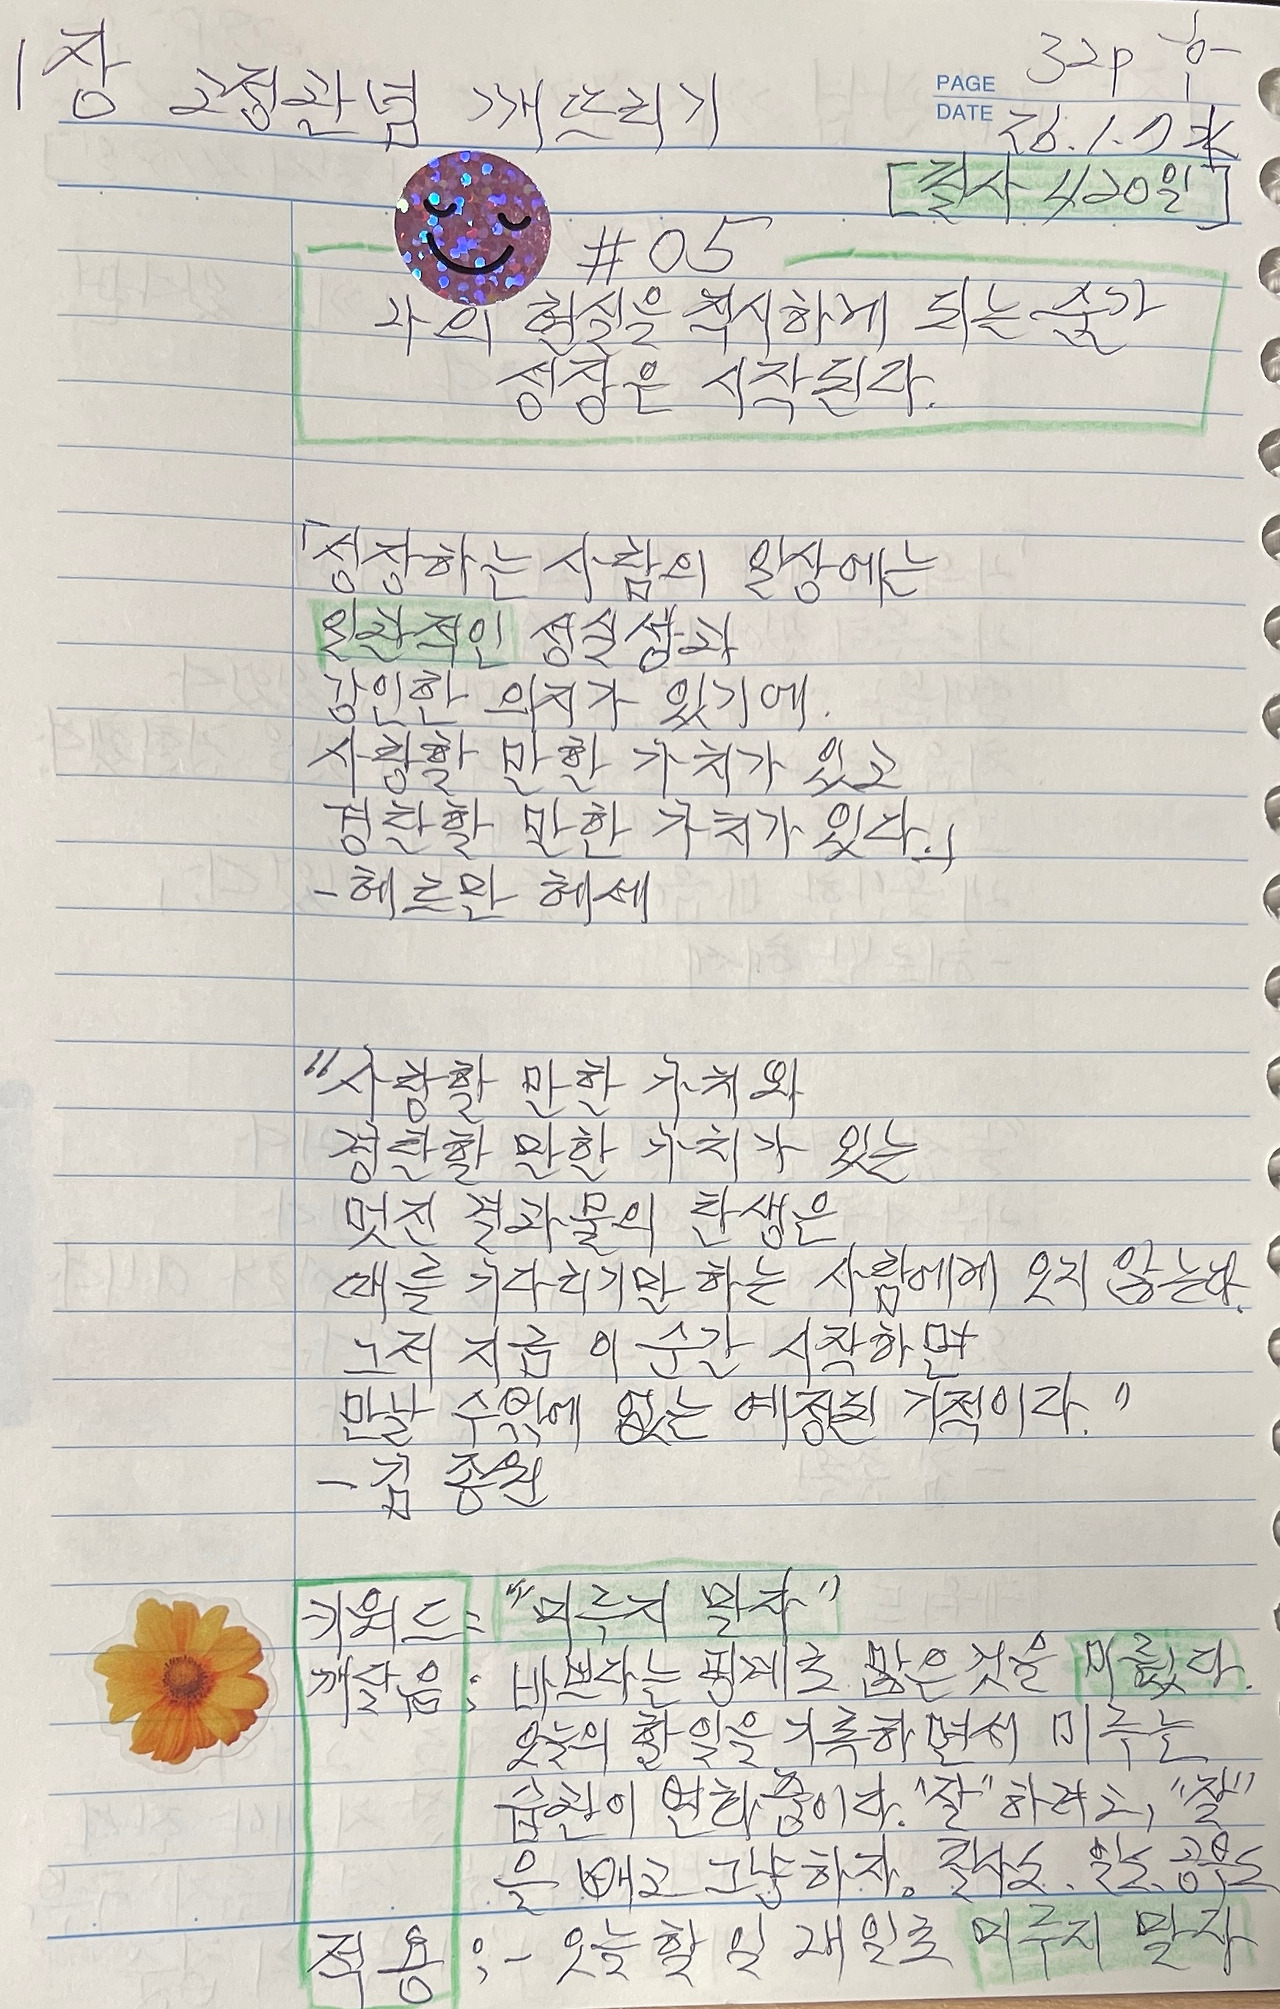 1장 고정관념 깨뜨리기
32p
PAGE
DATE 26.1.7 水
[필사 420일]
#05
나의 현실을 직시하게 되는 순간
성장은 시작된다.
「성장하는 사람의 일상에는
일관적인 성실성과
강인한 의지가 있기에.
사랑할 만한 가치가 있고
경탄할 만한 가치가 있다.」
-헤르만 헤세
"사랑할 만한 가치와
경탄할 만한 가치가 있는
멋진 결과물의 탄생은
때를 기다리기만 하는 사람에게 오지 않는다.
그저 지금 이 순간 시작하면
만날 수밖에 없는 예정된 기적이다."
-김종원
키워드: "미루지 말자"
깨달음: 바쁘다는 핑계로 많은 것을 미뤘다.
오늘의 할일을 기록하면서 미루는
습관이 변화중이다. "잘"하려고, "잘"
을 빼고 그냥하자. 필사도. 일도. 공부도
적용:- 오늘 할 일 내일로 미루지 말자